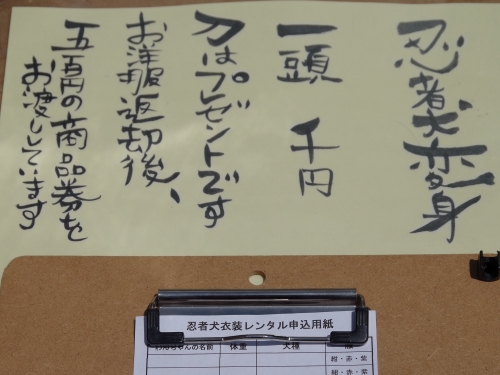 忍者犬変身
一頭 千円
刀はプレゼントです
お洋服返却後、
五百円の商品券を
お渡ししています
忍者犬衣装レンタル申込用紙
わんちゃんの名前 体重 犬種 服
紺・赤・紫
紺・赤・紫